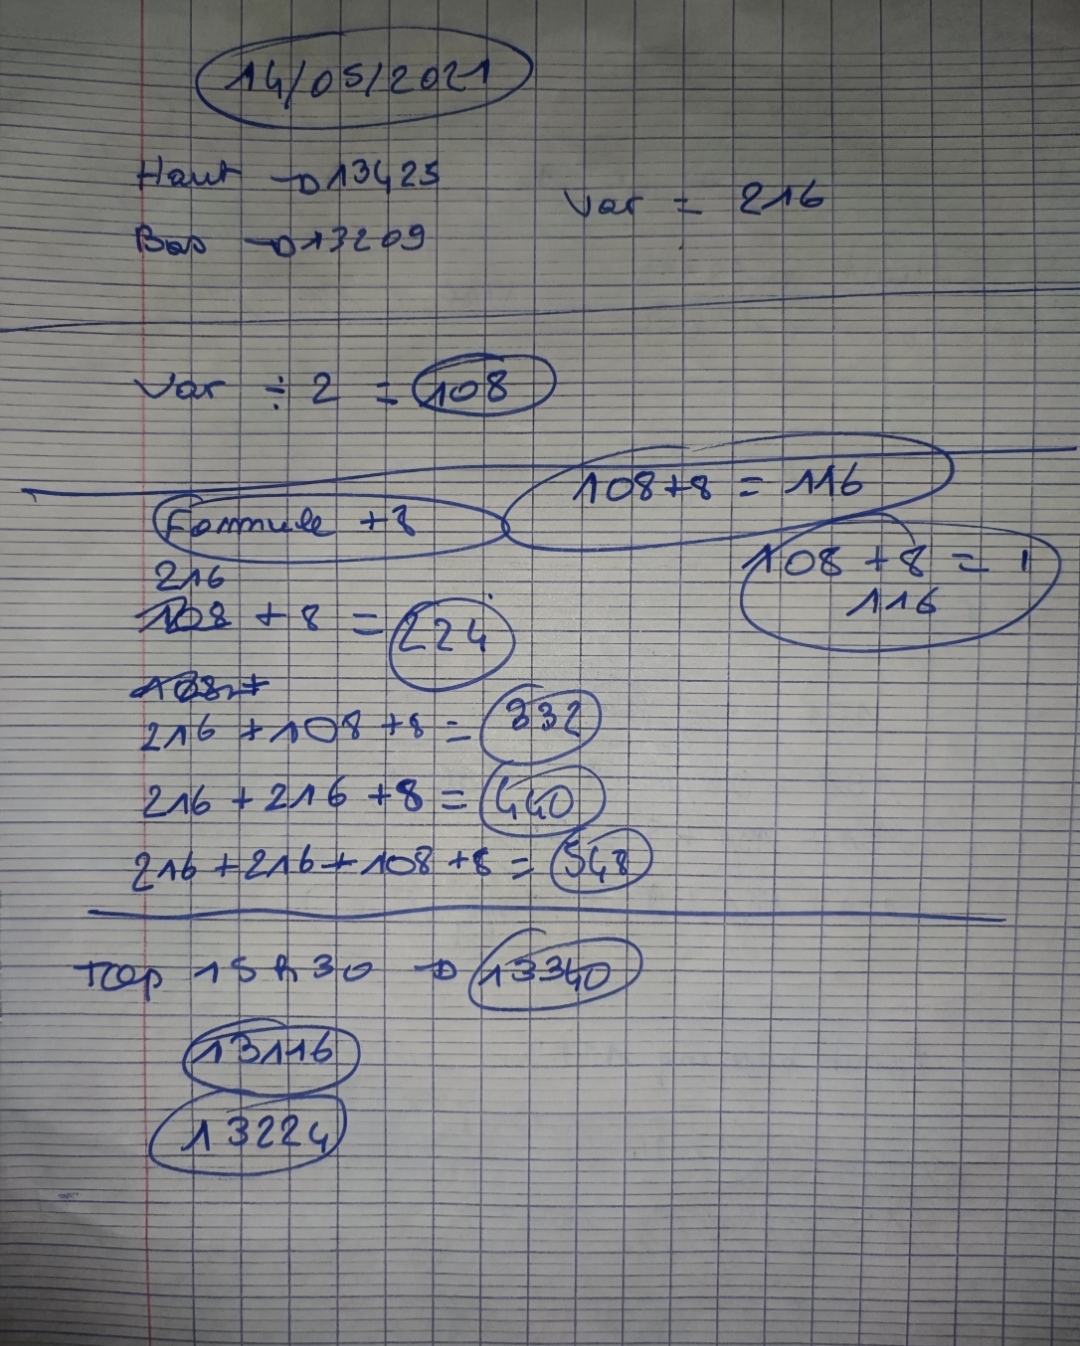 14/05/2021
Haut → 13425
Var = 216
Bas → 13209
Var ÷ 2 = 108
108+8 = 116
Formule +8
108 + 8 =
116
216
108 + 8 = 224
108+
216 + 108 + 8 = 332
216 + 216 + 8 = 440
216 + 216 + 108 + 8 = 548
15h30 → 13340
13116
13224